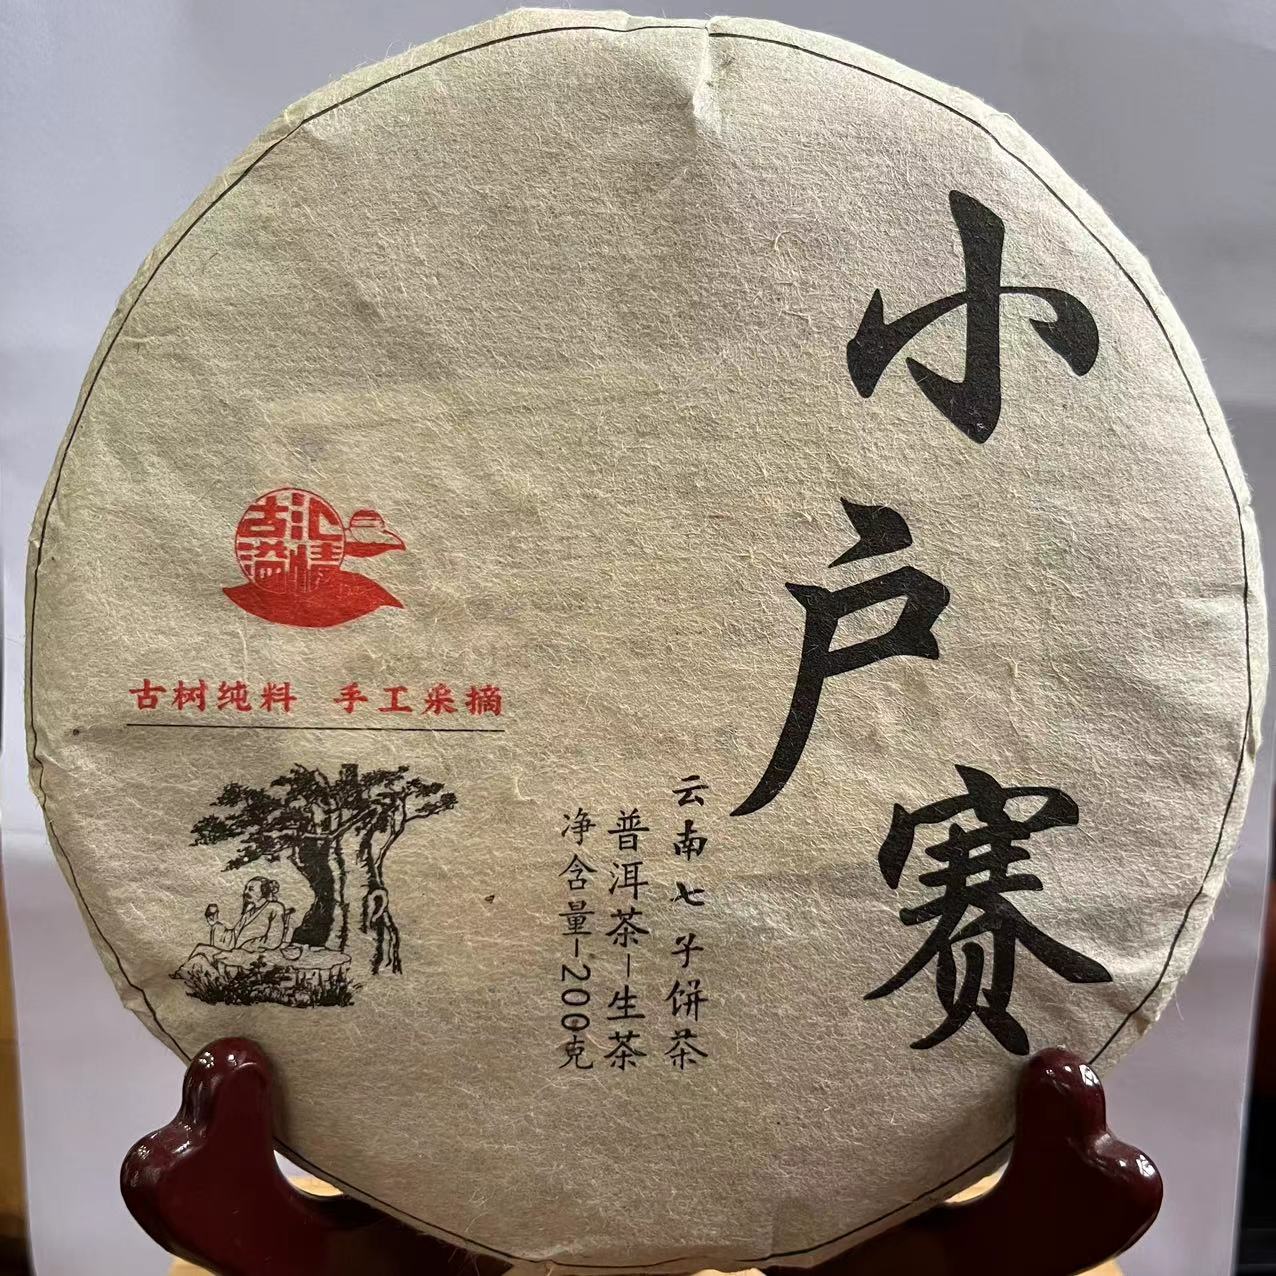 小户赛
云南七子饼茶
普洱茶-生茶
净含量-200克
古树纯料 手工采摘